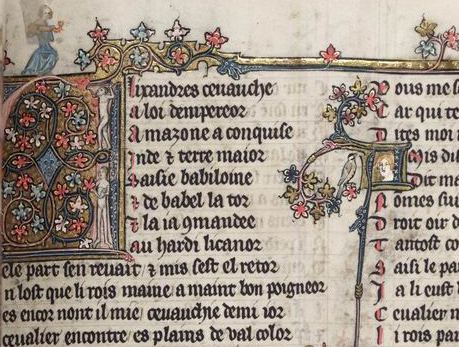 lixandres ceuauche
a loi dempereor
Amazone a conquise
Inde & terre maior
Saisie babiloine
& de babel la tor
& la ia 9mandee
au hardi licanor
ele part sen reuait / & mis sest el retor
n lost que li rois maine a maint bon poigneor
es encor nont il mie / ceuauchie demi ior
ceualier encontre / es plains de val color
Vous me
Car qui te
Dites moi
Dit ma
Tantost co
Saisi le pa
a li eust
Ceualier
li rois par